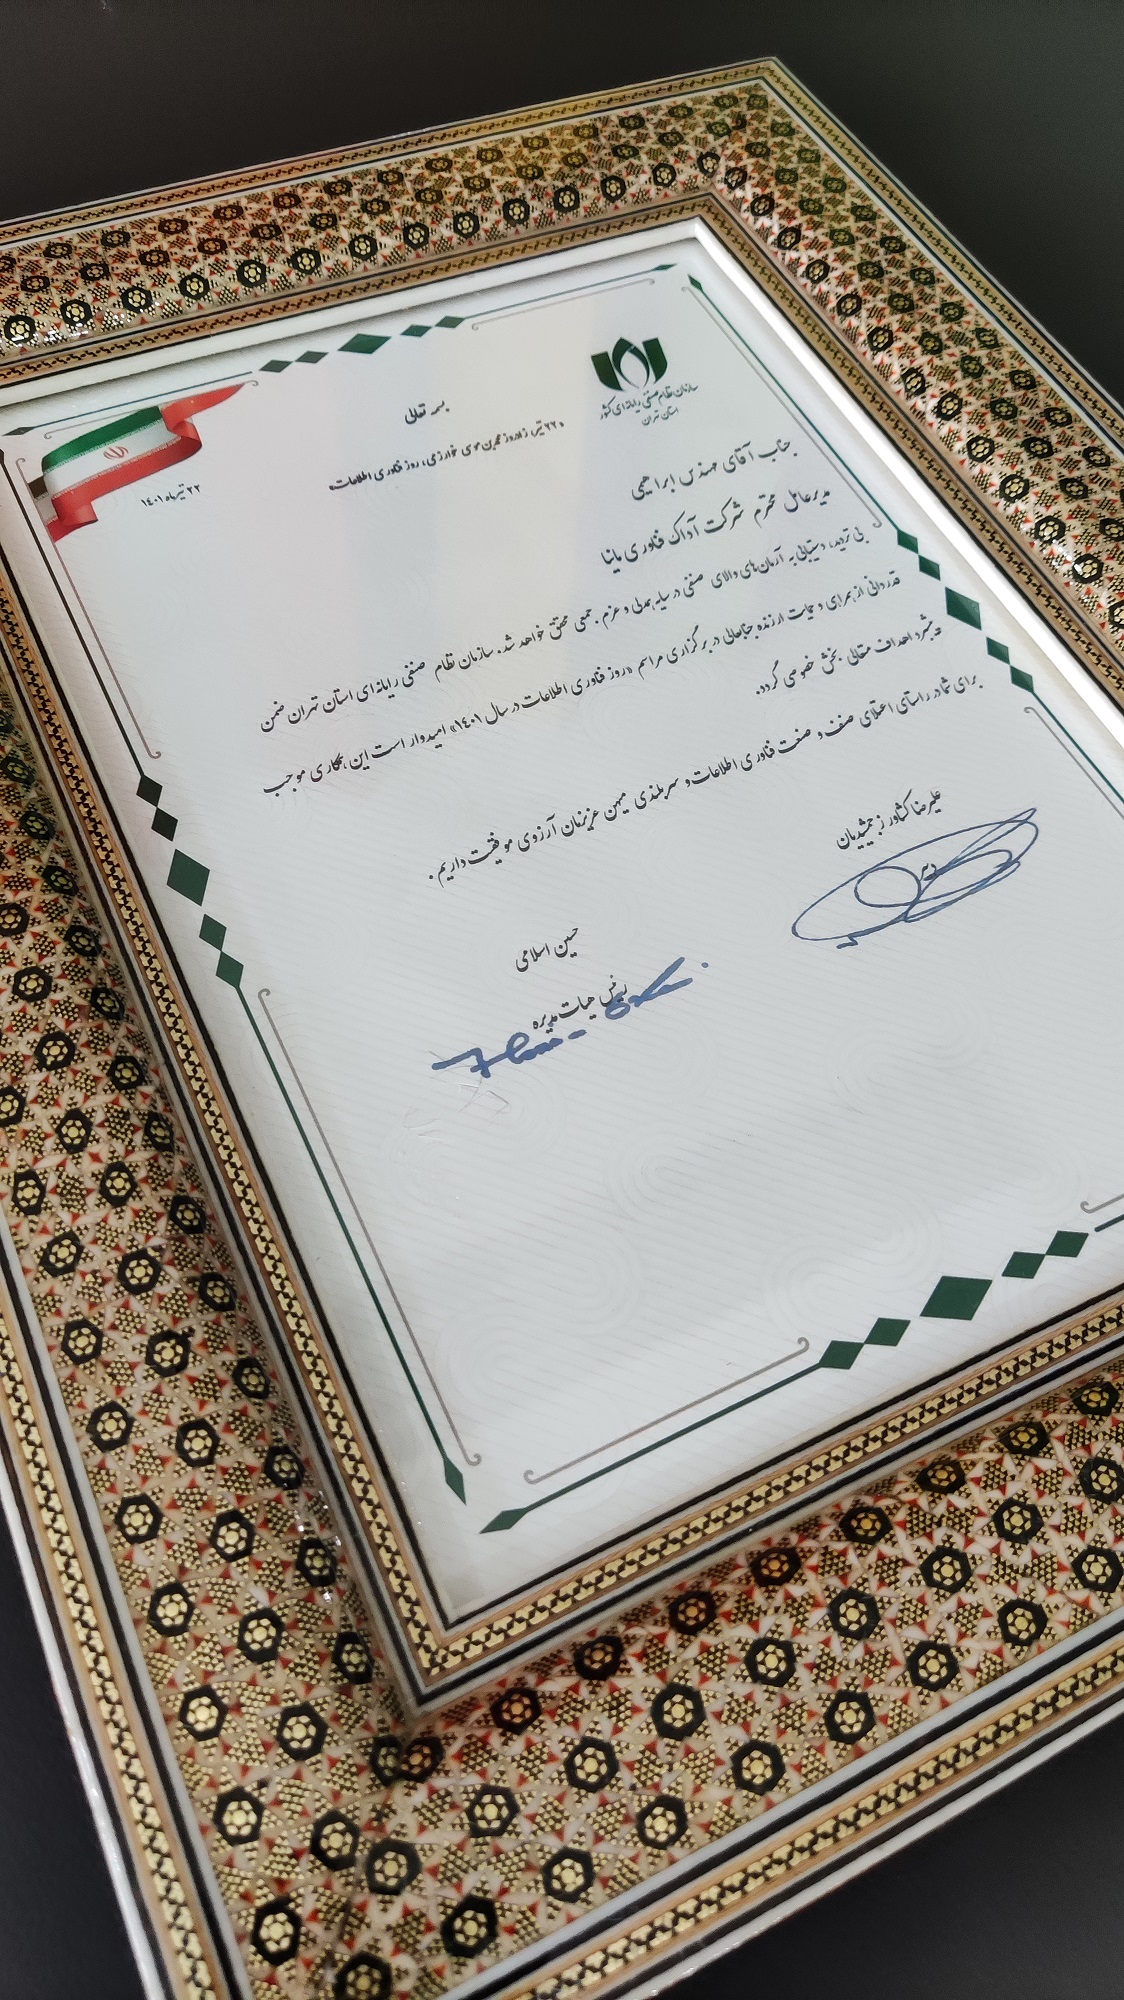 سازمان نظام صنفی رایانه‌ای کشور
استان تهران
بسمه تعالی
«۲۲ تیر، زادروز محمد بن موسی خوارزمی، روز فناوری اطلاعات»
۲۲ تیرماه ۱۴۰۱
جناب آقای مهندس ابراهیمی
مدیرعامل محترم شرکت آداک فناوری مانا
بی تردید، دستیابی به آرمان‌های والای صنفی در سایه همدلی و عزم جمعی محقق خواهد شد. سازمان نظام صنفی رایانه‌ای استان تهران ضمن
قدردانی از همراهی و حمایت ارزنده جنابعالی در برگزاری مراسم «روز فناوری اطلاعات در سال ۱۴۰۱» امیدوار است این همکاری موجب
پیشبرد اهداف متعالی بخش خصوصی گردد.
برای شما در راستای اعتلای صنف و صنعت فناوری اطلاعات و سربلندی میهن عزیزمان آرزوی موفقیت داریم.
علیرضا کشاورز جمشیدیان
دبیر
حسین اسلامی
رئیس هیات مدیره